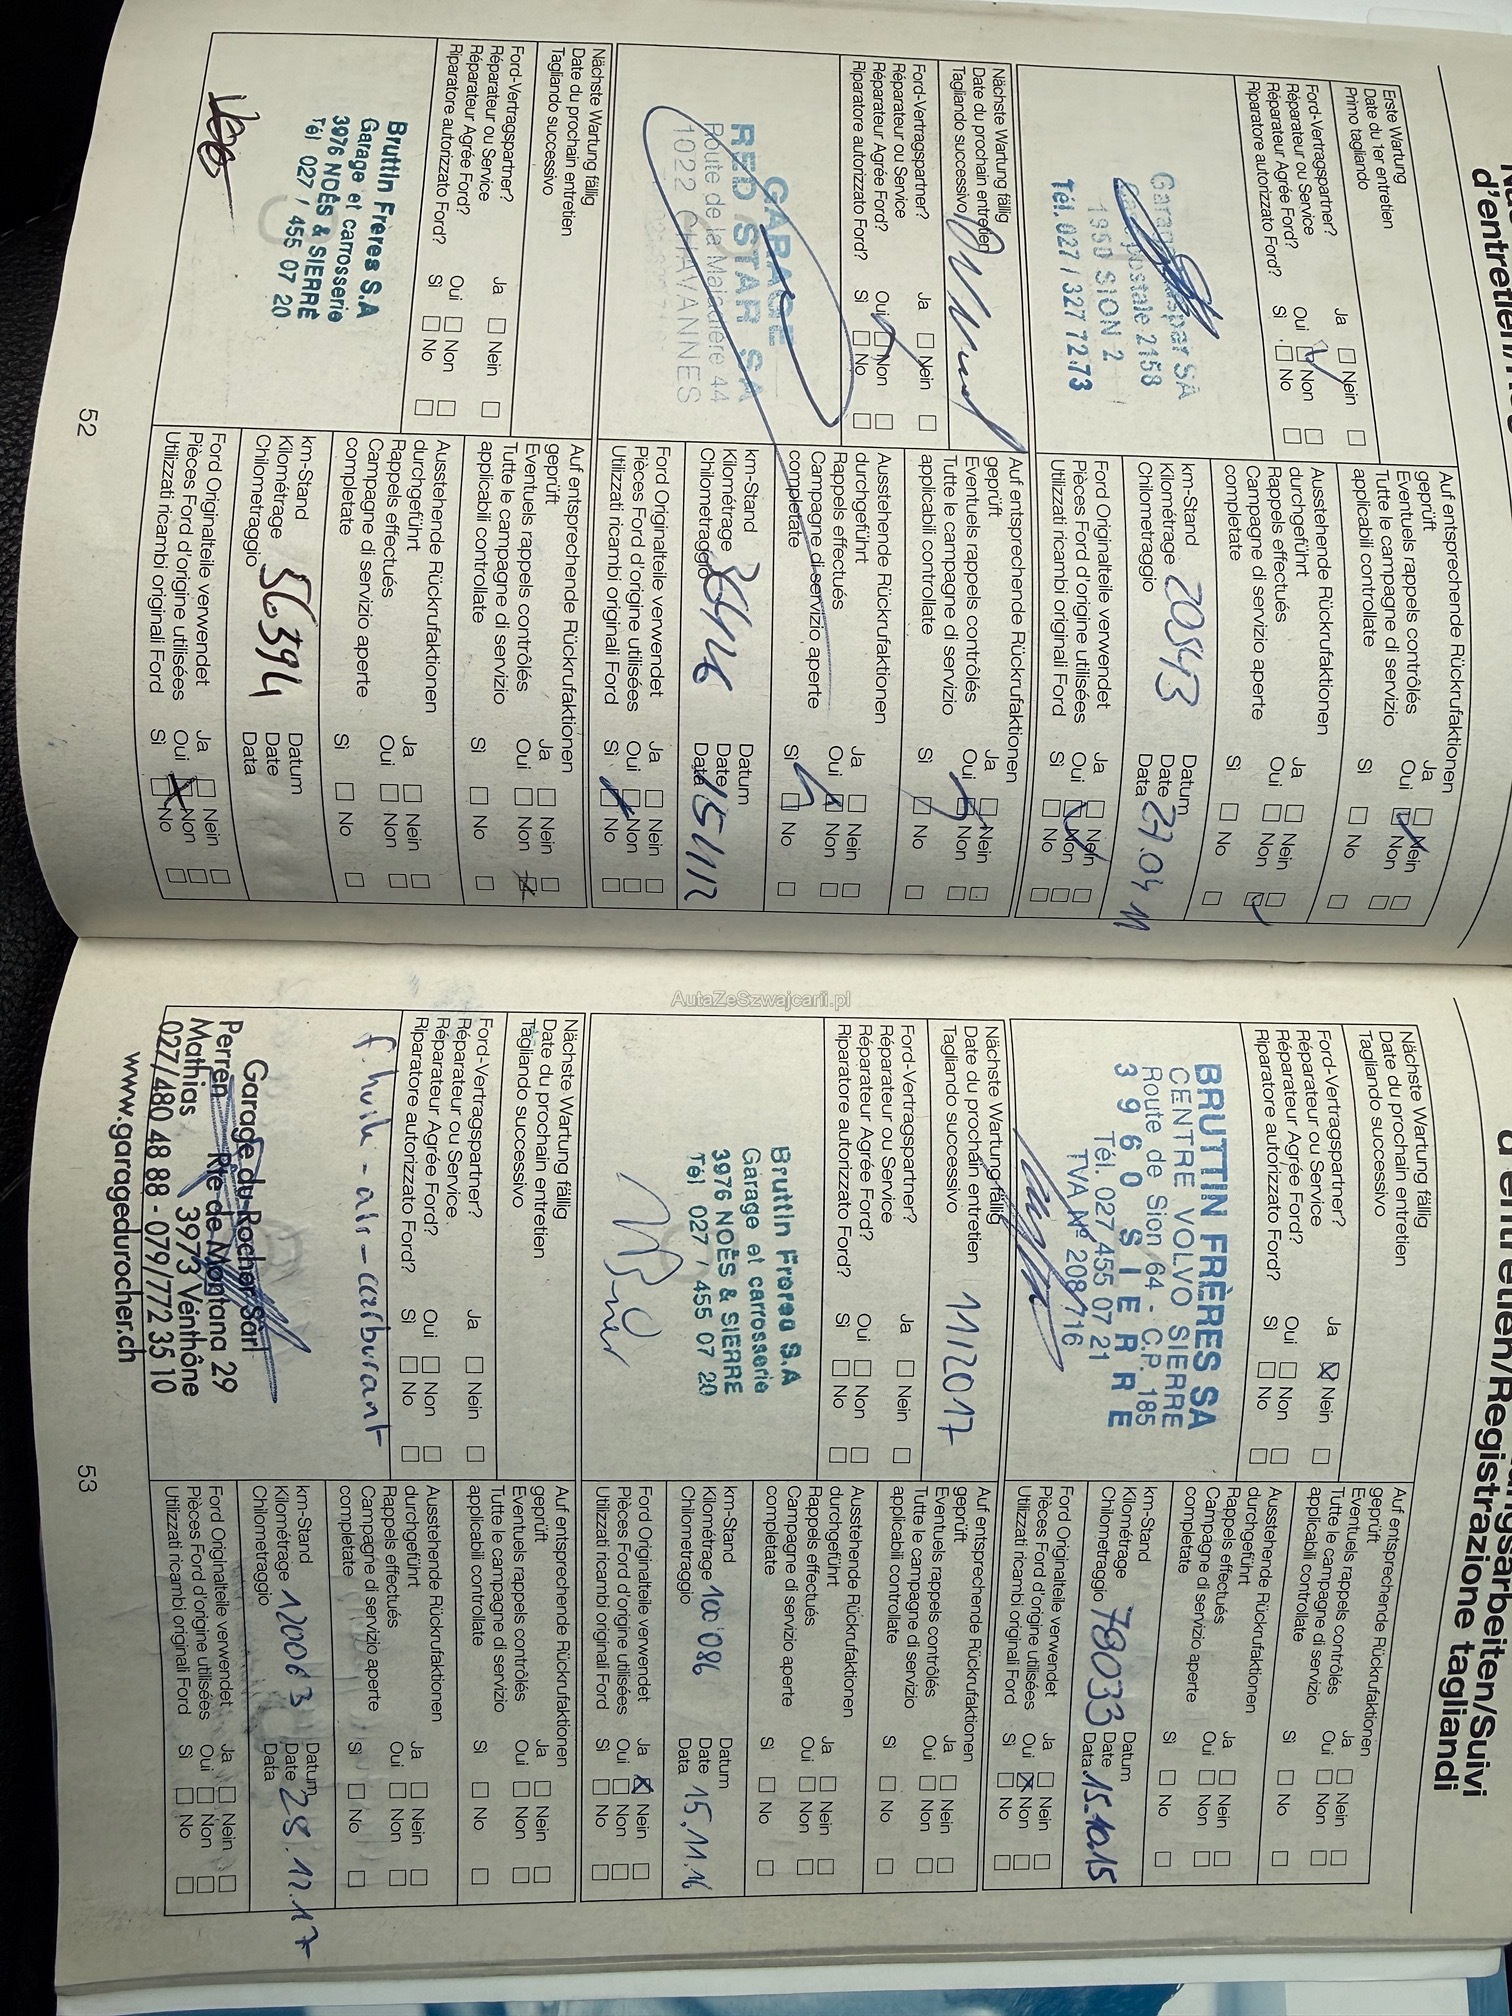 d'entretien
Erste Wartung
Date du 1er entretien
Primo tagliando
Ford-Vertragspartner?
Réparateur ou Service
Réparateur Agrée Ford?
Riparatore autorizzato Ford?
Ja Nein
Oui Non
Sì No
SA
2158
1950 SION 2
Tél. 027 / 327 72 73
Auf entsprechende Rückrufaktionen
geprüft
Eventuels rappels contrôlés
Tutte le campagne di servizio
applicabili controllate
Ja Nein
Oui Non
Sì No
Ausstehende Rückrufaktionen
durchgeführt
Rappels effectués
Campagne di servizio aperte
completate
Ja Nein
Oui Non
Sì No
km-Stand
Kilométrage 20543
Chilometraggio
Datum
Date 27.04 11
Data
Ford Originalteile verwendet
Pièces Ford d'origine utilisées
Utilizzati ricambi originali Ford
Ja Nein
Oui Non
Sì No
Nächste Wartung fällig
Date du prochain entretien
Tagliando successivo
Ford-Vertragspartner?
Réparateur ou Service
Réparateur Agrée Ford?
Riparatore autorizzato Ford?
Ja Nein
Oui Non
Sì No
GARAGE
RED STAR SA
Route de la Maladière 44
1022 CHAVANNES
Auf entsprechende Rückrufaktionen
geprüft
Eventuels rappels contrôlés
Tutte le campagne di servizio
applicabili controllate
Ja Nein
Oui Non
Sì No
Ausstehende Rückrufaktionen
durchgeführt
Rappels effectués
Campagne di servizio aperte
completate
Ja Nein
Oui Non
Sì No
km-Stand
Kilométrage
Chilometraggio
Datum
Date
Data
Ford Originalteile verwendet
Pièces Ford d'origine utilisées
Utilizzati ricambi originali Ford
Ja Nein
Oui Non
Sì No
Nächste Wartung fällig
Date du prochain entretien
Tagliando successivo
Ford-Vertragspartner?
Réparateur ou Service
Réparateur Agrée Ford?
Riparatore autorizzato Ford?
Ja Nein
Oui Non
Sì No
Bruttin Frères S.A
Garage et carrosserie
3976 NOËS & SIERRE
Tél 027 / 455 07 20
Auf entsprechende Rückrufaktionen
geprüft
Eventuels rappels contrôlés
Tutte le campagne di servizio
applicabili controllate
Ja Nein
Oui Non
Sì No
Ausstehende Rückrufaktionen
durchgeführt
Rappels effectués
Campagne di servizio aperte
completate
Ja Nein
Oui Non
Sì No
km-Stand
Kilométrage 56394
Chilometraggio
Datum
Date
Data
Ford Originalteile verwendet
Pièces Ford d'origine utilisées
Utilizzati ricambi originali Ford
Ja Nein
Oui Non
Sì No
52
d'entretien/Registrazione tagliandi
Nächste Wartung fällig
Date du prochain entretien
Tagliando successivo
Ford-Vertragspartner?
Réparateur ou Service
Réparateur Agrée Ford?
Riparatore autorizzato Ford?
Ja Nein
Oui Non
Sì No
BRUTTIN FRÈRES SA
CENTRE VOLVO SIERRE
Route de Sion 64 - C.P. 185
3960 SIERRE
Tél. 027 455 07 21
TVA Nº 208 716
Auf entsprechende Rückrufaktionen
geprüft
Eventuels rappels contrôlés
Tutte le campagne di servizio
applicabili controllate
Ja Nein
Oui Non
Sì No
Ausstehende Rückrufaktionen
durchgeführt
Rappels effectués
Campagne di servizio aperte
completate
Ja Nein
Oui Non
Sì No
km-Stand
Kilométrage
Chilometraggio 78033
Datum
Date
Data 15.10.15
Ford Originalteile verwendet
Pièces Ford d'origine utilisées
Utilizzati ricambi originali Ford
Ja Nein
Oui Non
Sì No
Nächste Wartung fällig
Date du prochain entretien
Tagliando successivo
11/2017
Ford-Vertragspartner?
Réparateur ou Service
Réparateur Agrée Ford?
Riparatore autorizzato Ford?
Ja Nein
Oui Non
Sì No
Bruttin Frères S.A
Garage et carrosserie
3976 NOËS & SIERRE
Tél 027 / 455 07 20
Auf entsprechende Rückrufaktionen
geprüft
Eventuels rappels contrôlés
Tutte le campagne di servizio
applicabili controllate
Ja Nein
Oui Non
Sì No
Ausstehende Rückrufaktionen
durchgeführt
Rappels effectués
Campagne di servizio aperte
completate
Ja Nein
Oui Non
Sì No
km-Stand
Kilométrage 100'086
Chilometraggio
Datum
Date 15.11.16
Data
Ford Originalteile verwendet
Pièces Ford d'origine utilisées
Utilizzati ricambi originali Ford
Ja Nein
Oui Non
Sì No
Nächste Wartung fällig
Date du prochain entretien
Tagliando successivo
Ford-Vertragspartner?
Réparateur ou Service
Réparateur Agrée Ford?
Riparatore autorizzato Ford?
Ja Nein
Oui Non
Sì No
f. huile - air - carburant
Garage du Rocher Sàrl
Perren Rte de Montana 29
Mathias 3973 Venthône
027/480 48 88 - 079/772 35 10
www.garagedurocher.ch
Auf entsprechende Rückrufaktionen
geprüft
Eventuels rappels contrôlés
Tutte le campagne di servizio
applicabili controllate
Ja Nein
Oui Non
Sì No
Ausstehende Rückrufaktionen
durchgeführt
Rappels effectués
Campagne di servizio aperte
completate
Ja Nein
Oui Non
Sì No
km-Stand
Kilométrage 120063
Chilometraggio
Datum
Date
Data
Ford Originalteile verwendet
Pièces Ford d'origine utilisées
Utilizzati ricambi originali Ford
Ja Nein
Oui Non
Sì No
53
AutaZeSzwajcarii.pl